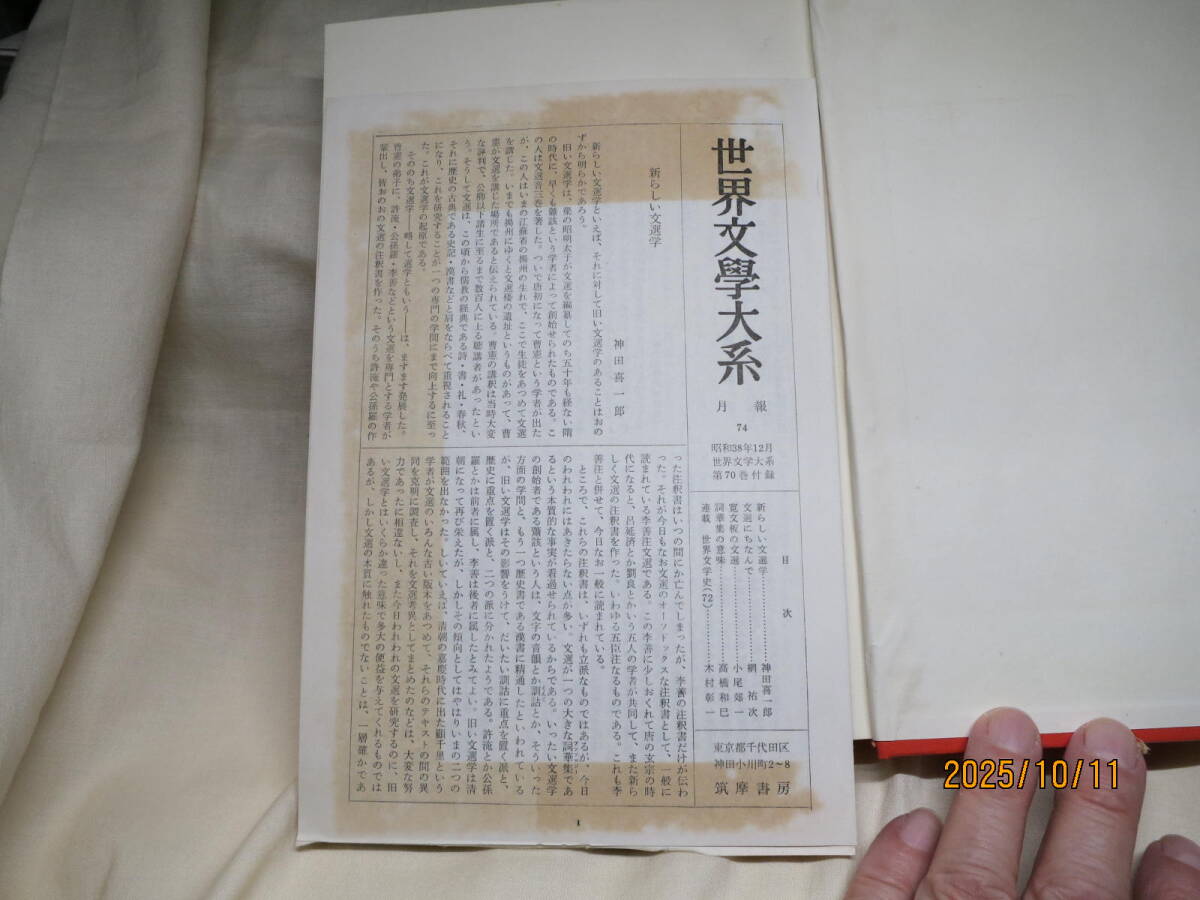 世界文學大系
月報
74
昭和38年12月
世界文学大系
第70巻付録
目次
新らしい文選学……………神田喜一郎
文選にちなんで……………網祐次
寛文板の文選……………小尾郊一
詞華集の意味……………高橋和巳
連載 世界文学史(72)……………木村彰一
東京都千代田区
神田小川町2~8
筑摩書房
新らしい文選学
神田喜一郎
新らしい文選学といえば、それに対して旧い文選学のあることはおの
ずから明らかであろう。
旧い文選学は、梁の昭明太子が文選を編纂してのち五十年も経ない隋
の時代に、早くも蕭該という学者によって創始せられたものである。こ
の人は文選音三巻を著した。ついで唐初になって曹憲という学者が出た
が、この人はいまの江蘇省の揚州の生れで、ここで生徒をあつめて文選
を講じた。いまでも揚州にゆくと文選楼の遺址というものがあって、曹
憲が文選を講じた場所であると伝えられている。曹憲の講釈は当時大変
な評判で、公卿以下諸生に至るまで数百人に上る聴講者があったとい
う。そうして文選は、この頃から儒教の経典である詩・書・礼・春秋、
それに歴史の古典である史記・漢書などと肩をならべて重視されること
になり、これを研究することが一つの専門の学問にまで向上するに至っ
た。これが文選学の起原である。
そののち文選学——略して選学ともいう——は、ますます発展した。
曹憲の弟子に、許淹・公孫羅・李善などという文選を専門とする学者が
輩出し、皆おのおの文選の注釈書を作った。そのうち許淹や公孫羅の作
った注釈書はいつの間にか亡んでしまったが、李善の注釈書だけが伝わ
った。それが今日もなお文選のオーソドックスな注釈書として、一般に
読まれている李善注文選である。この李善に少しおくれて唐の玄宗の時
代になると、呂延済とか劉良とかいう五人の学者が共同して、また新ら
しく文選の注釈書を作った。いわゆる五臣注なるものである。これも李
善注と併せて、今日なお一般に読まれている。
ところで、これらの注釈書は、いずれも立派なものではあるが、今日
のわれわれにはあきたらない点が多い。文選が一つの大きな詞華集であ
るという本質的な事実が看過せられているからである。いったい文選学
の創始者である蕭該という人は、文字の音韻とか訓詁とか、そういった
方面の学問と、もう一つ歴史書である漢書に精通したといわれている
が、旧い文選学はその影響をうけて、だいたい訓詁に重点を置く派と、
歴史に重点を置く派と、二つの派に分かれたようである。許淹とか公孫
羅とかは前者に属し、李善は後者に属したとみてよい。旧い文選学は清
朝になって再び栄えたが、しかしその傾向としてはやはりいまの二つの
範囲を出なかった。しいていえば、清朝の嘉慶時代に出た顧千里という
学者が文選のいろんな古い版本をあつめて、それらのテキストの間の異
同を克明に調査し、それを文選考異としてまとめたのなどは、大変な努
力であったに相違ないし、また今日われわれの文選を研究するのに、旧
い文選学とはいくらか違った意味で多大の便益を与えてくれるものでは
あるが、しかし文選の本質に触れたものでないことは、一層確かであ
1
2025/10/11